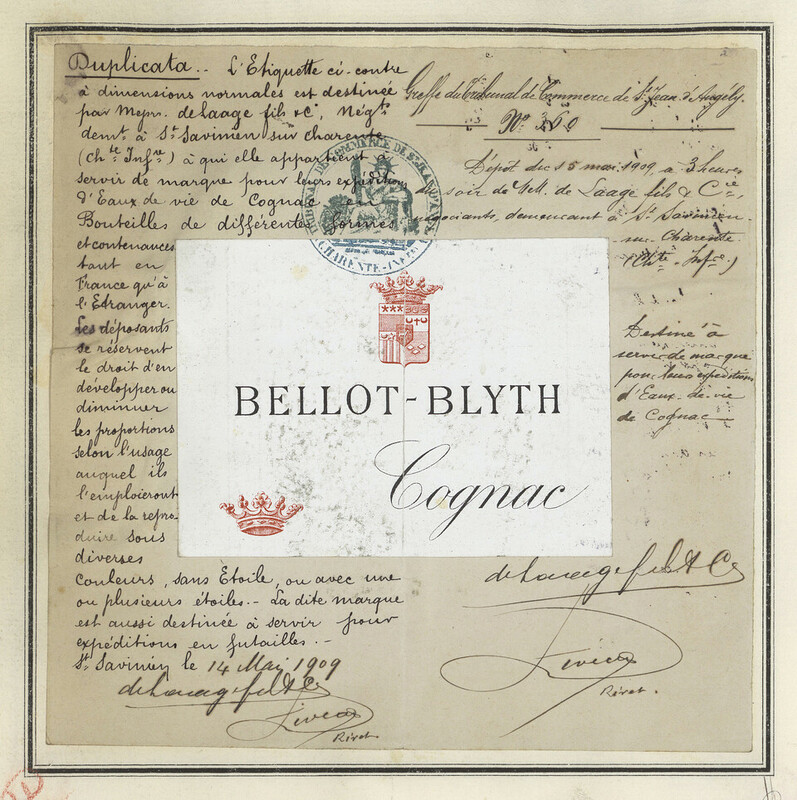 Duplicata.. L'Etiquette ci-contre
à dimensions normales est destinée
par Meprs. de Laage fils & Cie, Négts
demt à St Savinien sur Charente
(Chte Infre) à qui elle appartient à
servir de marque pour leurs expéditions
d'Eaux de vie de Cognac en
Bouteilles de différentes formes
et contenances
tant en
France qu'à
l'Etranger.
Les déposants
se réservent
le droit d'en
développer ou
diminuer
les proportions
selon l'usage
auquel ils
l'emploieront
et de la repro-
duire sous
diverses
couleurs, sans Etoile, ou avec une
ou plusieurs étoiles.- La dite marque
est aussi destinée à servir pour
expéditions en futailles.-
St Savinien le 14 Mai 1909
de Laage fils & Cie
Rivet
Greffe du Tribunal de Commerce de St Jean d'Angély.
No 360
Dépôt du 15 mai 1909, à 3 heures
du soir de MM. de Laage fils & Cie,
négociants, demeurant à St Savinien
sur Charente
(Chte Infce)
Destiné à
servir de marque
pour leurs expéditions
d'Eaux-de-vie
de Cognac
TRIBUNAL DE COMMERCE DE ST JEAN D'ANGELY
CHARENTE-INFRE
BELLOT-BLYTH
Cognac
de Laage fils & Cie
Rivet.